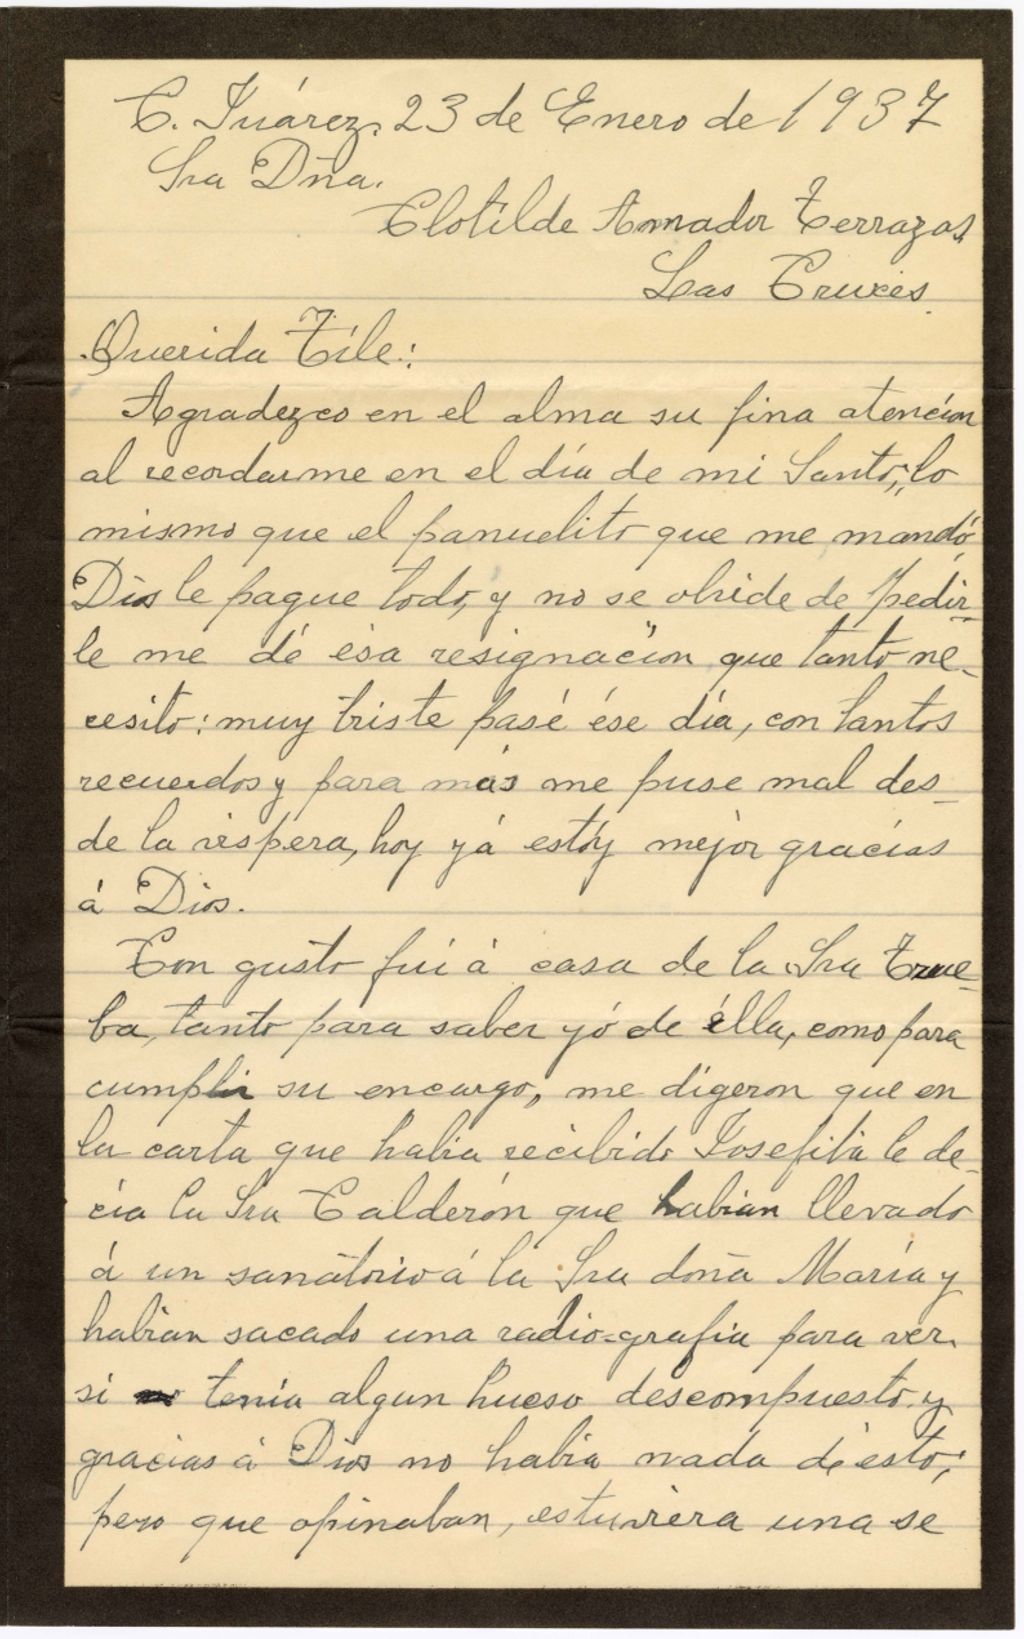 C. Juárez, 23 de Enero de 1937
Sra Dña.
Clotilde Amador Terrazas
Las Cruces.
Querida Tíle:
Agradezco en el alma su fina atención
al recordarme en el día de mi Santo; lo
mismo que el panuelito que me mandó,
Dios le pague todo, y no se olvide de pedir-
le me dé ésa resignación que tanto ne-
cesito: muy triste pasé ése día, con tantos
recuerdos y para más me puse mal des-
de la vispera, hoy yá estóy mejor gracias
á Dios.
Con gusto fuí á casa de la Sra True-
ba, tanto para saber yó de élla, como para
cumplir su encargo, me digeron que en
la carta que habia recibido Josefita le de-
cía la Sra Calderón que habian llevado
á un sanatorio á la Sra doña María y
habian sacado una radio-grafia para ver
si tenia algun hueso descompuesto y
gracias á Dios no habia nada de ésto;
pero que opinaban, estuviera una se